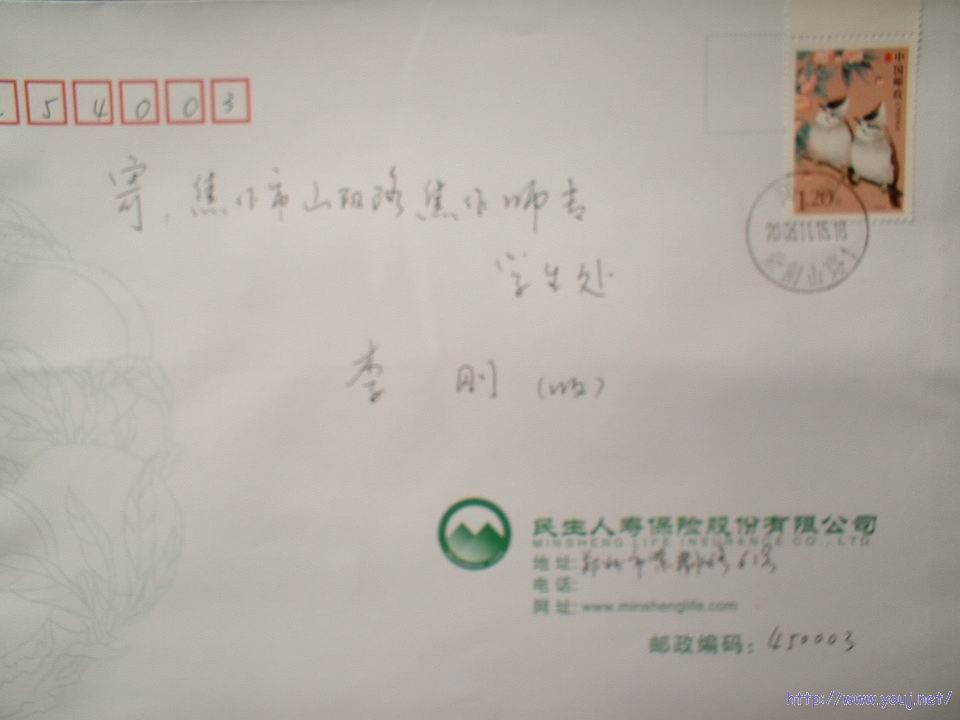 54003
寄：焦作市山阳路焦作师专
学生处
李 刚 (收)
中国邮政
1.20元
2008.11.15.18
民生人寿保险股份有限公司
MINSHENG LIFE INSURANCE CO., LTD.
地 址: 郑州市 61号
电 话:
网 址: www.minshenglife.com
邮政编码: 450003
http://www.youj.net/